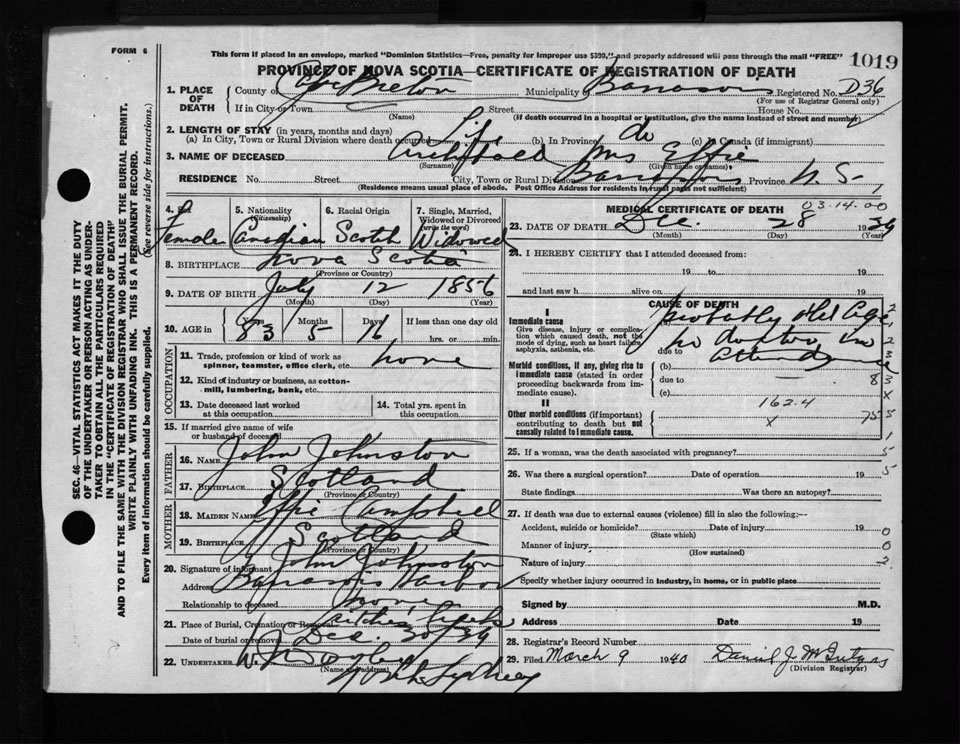 FORM 6
This form if placed in an envelope, marked "Dominion Statistics—Free, penalty for improper use $300," and properly addressed will pass through the mail "FREE"
1019
PROVINCE OF NOVA SCOTIA—CERTIFICATE OF REGISTRATION OF DEATH
1. PLACE OF DEATH
County of Cape Breton Municipality Registered No. D36
(For use of Registrar General only)
If in City or Town Street House No.
(Name) (If death occurred in a hospital or institution, give the name instead of street and number)
2. LENGTH OF STAY (in years, months and days)
(a) In City, Town or Rural Division where death occurred Life (b) In Province do (c) In Canada (if immigrant)
3. NAME OF DECEASED Archibald Mrs Effie
(Surname) (Given name or names)
RESIDENCE No. Street City, Town or Rural Division Province N. S.
(Residence means usual place of abode. Post Office Address for residents in rural parts not sufficient)
4. Sex Female
5. Nationality (Citizenship) Canadian
6. Racial Origin Scotch
7. Single, Married, Widowed or Divorced (write the word) Widowed
8. BIRTHPLACE Nova Scotia
(Province or Country)
9. DATE OF BIRTH July 12 1856
(Month) (Day) (Year)
10. AGE in Years 83 Months 5 Days 16 If less than one day old
hrs. or min.
OCCUPATION
11. Trade, profession or kind of work as spinner, teamster, office clerk, etc. none
12. Kind of industry or business, as cotton-mill, lumbering, bank, etc.
13. Date deceased last worked at this occupation
14. Total yrs. spent in this occupation
15. If married give name of wife or husband of deceased
FATHER
16. NAME John Johnston
17. BIRTHPLACE Scotland
(Province or Country)
MOTHER
18. MAIDEN NAME Effie Campbell
19. BIRTHPLACE Scotland
(Province or Country)
20. Signature of informant John Johnston
Address Harbor
Relationship to deceased none
21. Place of Burial, Cremation or Removal
Date of burial or removal Dec. 30/39
22. UNDERTAKER
(Name and address)
North Sydney
MEDICAL CERTIFICATE OF DEATH
03-14-00
23. DATE OF DEATH Dec. 28 1939
(Month) (Day) (Year)
24. I HEREBY CERTIFY that I attended deceased from:
19 to 19
and last saw h alive on 19
CAUSE OF DEATH
I
Immediate cause
Give disease, injury or complication which caused death, not the mode of dying, such as heart failure, asphyxia, asthenia, etc.
Probably Old Age
No doctor in
due to attendance
Morbid conditions, if any, giving rise to immediate cause (stated in order proceeding backwards from immediate cause).
(b)
due to
(c)
II
Other morbid conditions (if important) contributing to death but not causally related to immediate cause.
162.4
x
25. If a woman, was the death associated with pregnancy?
26. Was there a surgical operation? Date of operation 19
State findings Was there an autopsy?
27. If death was due to external causes (violence) fill in also the following:—
Accident, suicide or homicide? Date of injury 19
(State which)
Manner of injury
(How sustained)
Nature of injury
Specify whether injury occurred in industry, in home, or in public place
Signed by M.D.
Address Date 19
28. Registrar's Record Number
29. Filed March 9 1940 Daniel J.
(Division Registrar)
SEC. 46—VITAL STATISTICS ACT MAKES IT THE DUTY
OF THE UNDERTAKER OR PERSON ACTING AS UNDER-
TAKER TO OBTAIN ALL THE PARTICULARS REQUIRED
IN THE "CERTIFICATE OF REGISTRATION OF DEATH"
AND TO FILE THE SAME WITH THE DIVISION REGISTRAR WHO SHALL ISSUE THE BURIAL PERMIT.
WRITE PLAINLY WITH UNFADING INK. THIS IS A PERMANENT RECORD.
Every item of information should be carefully supplied. (See reverse side for instructions.)